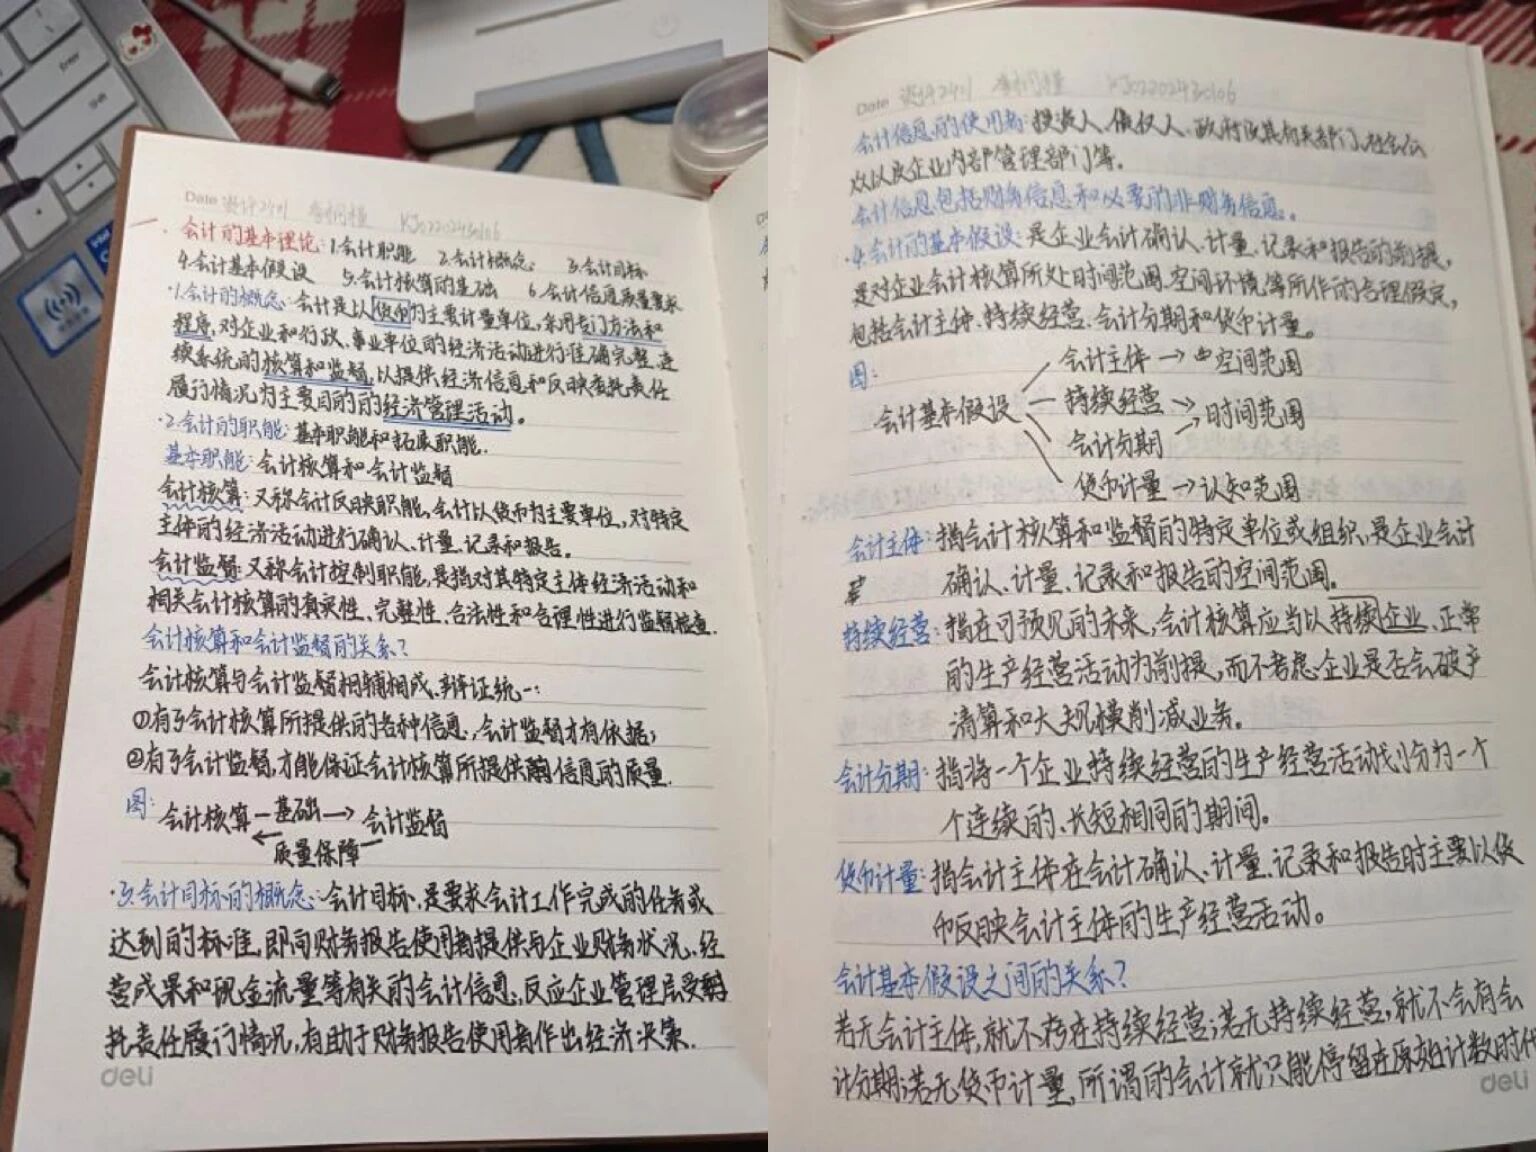 Date 资计2401 KJ02202430106
会计的基本理论:1.会计职能 2.会计概念 3.会计目标
4.会计基本假设 5.会计核算的基础 6.会计信息质量要求
·1.会计的概念:会计是以货币为主要计量单位,采用专门方法和
程序,对企业和行政、事业单位的经济活动进行准确完整、连
续系统的核算和监督,以提供经济信息和反映委托责任
履行情况为主要目的的经济管理活动。
·2.会计的职能:基本职能和拓展职能.
基本职能:会计核算和会计监督
会计核算:又称会计反映职能,会计以货币为主要单位,对特定
主体的经济活动进行确认、计量、记录和报告。
会计监督:又称会计控制职能,是指对其特定主体经济活动和
相关会计核算的真实性、完整性、合法性和合理性进行监督检查.
会计核算和会计监督的关系?
会计核算与会计监督相辅相成、辩证统一:
①有了会计核算所提供的各种信息,会计监督才有依据;
②有了会计监督,才能保证会计核算所提供信息的质量.
图:会计核算 基础→ 会计监督
← 质量保障
·3.会计目标的概念:会计目标,是要求会计工作完成的任务或
达到的标准,即向财务报告使用者提供与企业财务状况、经
营成果和现金流量等有关的会计信息,反应企业管理层受
托责任履行情况,有助于财务报告使用者作出经济决策.
deli
Date 资计2401 KJ02202430106
会计信息的使用者:投资人、债权人、政府及其有关部门、社会公
众以及企业内部管理部门等.
会计信息包括财务信息和必要的非财务信息。
·4.会计的基本假设:是企业会计确认、计量、记录和报告的前提,
是对企业会计核算所处时间范围、空间环境等所作的合理假定,
包括会计主体、持续经营、会计分期和货币计量。
图:
会计主体→空间范围
会计基本假设
持续经营→时间范围
会计分期
货币计量→认知范围
会计主体:指会计核算和监督的特定单位或组织,是企业会计
确认、计量、记录和报告的空间范围.
持续经营:指在可预见的未来,会计核算应当以持续企业、正常
的生产经营活动为前提,而不考虑企业是否会破产
清算和大规模削减业务。
会计分期:指将一个企业持续经营的生产经营活动划分为一个
个连续的、长短相同的期间。
货币计量:指会计主体在会计确认、计量、记录和报告时主要以货
币反映会计主体的生产经营活动。
会计基本假设之间的关系?
若无会计主体,就不存在持续经营;若无持续经营,就不会有会
计分期;若无货币计量,所谓的会计就只能停留在原始计数时代
deli